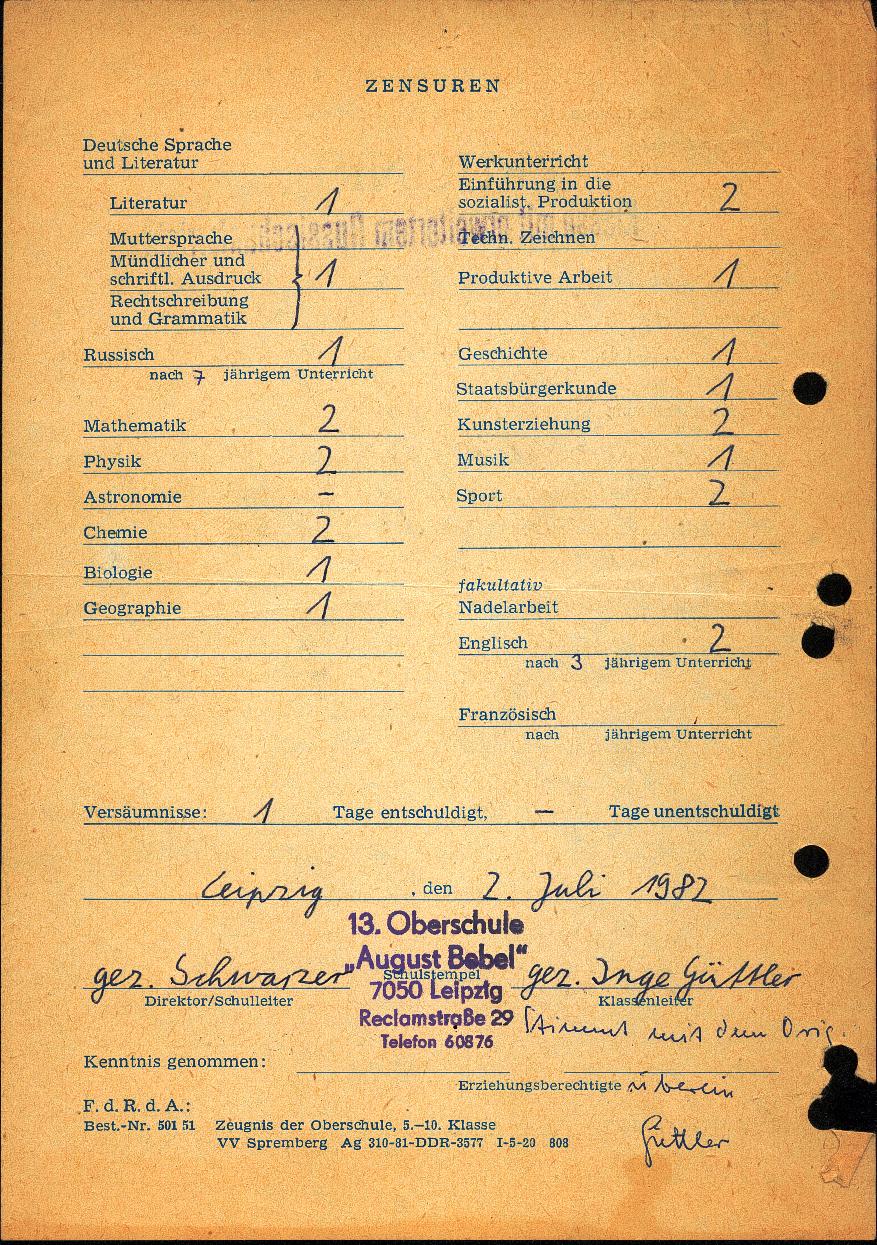 ZENSUREN
Deutsche Sprache
und Literatur
Literatur 1
Muttersprache
Mündlicher und
schriftl. Ausdruck 1
Rechtschreibung
und Grammatik
Russisch 1
nach 7 jährigem Unterricht
Mathematik 2
Physik 2
Astronomie –
Chemie 2
Biologie 1
Geographie 1
Werkunterricht
Einführung in die
sozialist. Produktion 2
Techn. Zeichnen
Produktive Arbeit 1
Geschichte 1
Staatsbürgerkunde 1
Kunsterziehung 2
Musik 1
Sport 2
fakultativ
Nadelarbeit
Englisch 2
nach 3 jährigem Unterricht
Französisch
nach jährigem Unterricht
Versäumnisse: 1 Tage entschuldigt, – Tage unentschuldigt
Leipzig, den 2. Juli 1982
13. Oberschule
„August Bebel“
7050 Leipzig
Reclamstraße 29
Telefon 60876
gez. Schwarzer
Direktor/Schulleiter
Schulstempel
gez. Inge Güttler
Klassenleiter
Stimmt mit dem Orig.
überein
Güttler
Kenntnis genommen:
Erziehungsberechtigte
F. d. R. d. A.:
Best.-Nr. 501 51 Zeugnis der Oberschule, 5.–10. Klasse
VV Spremberg Ag 310-81-DDR-3577 I-5-20 808